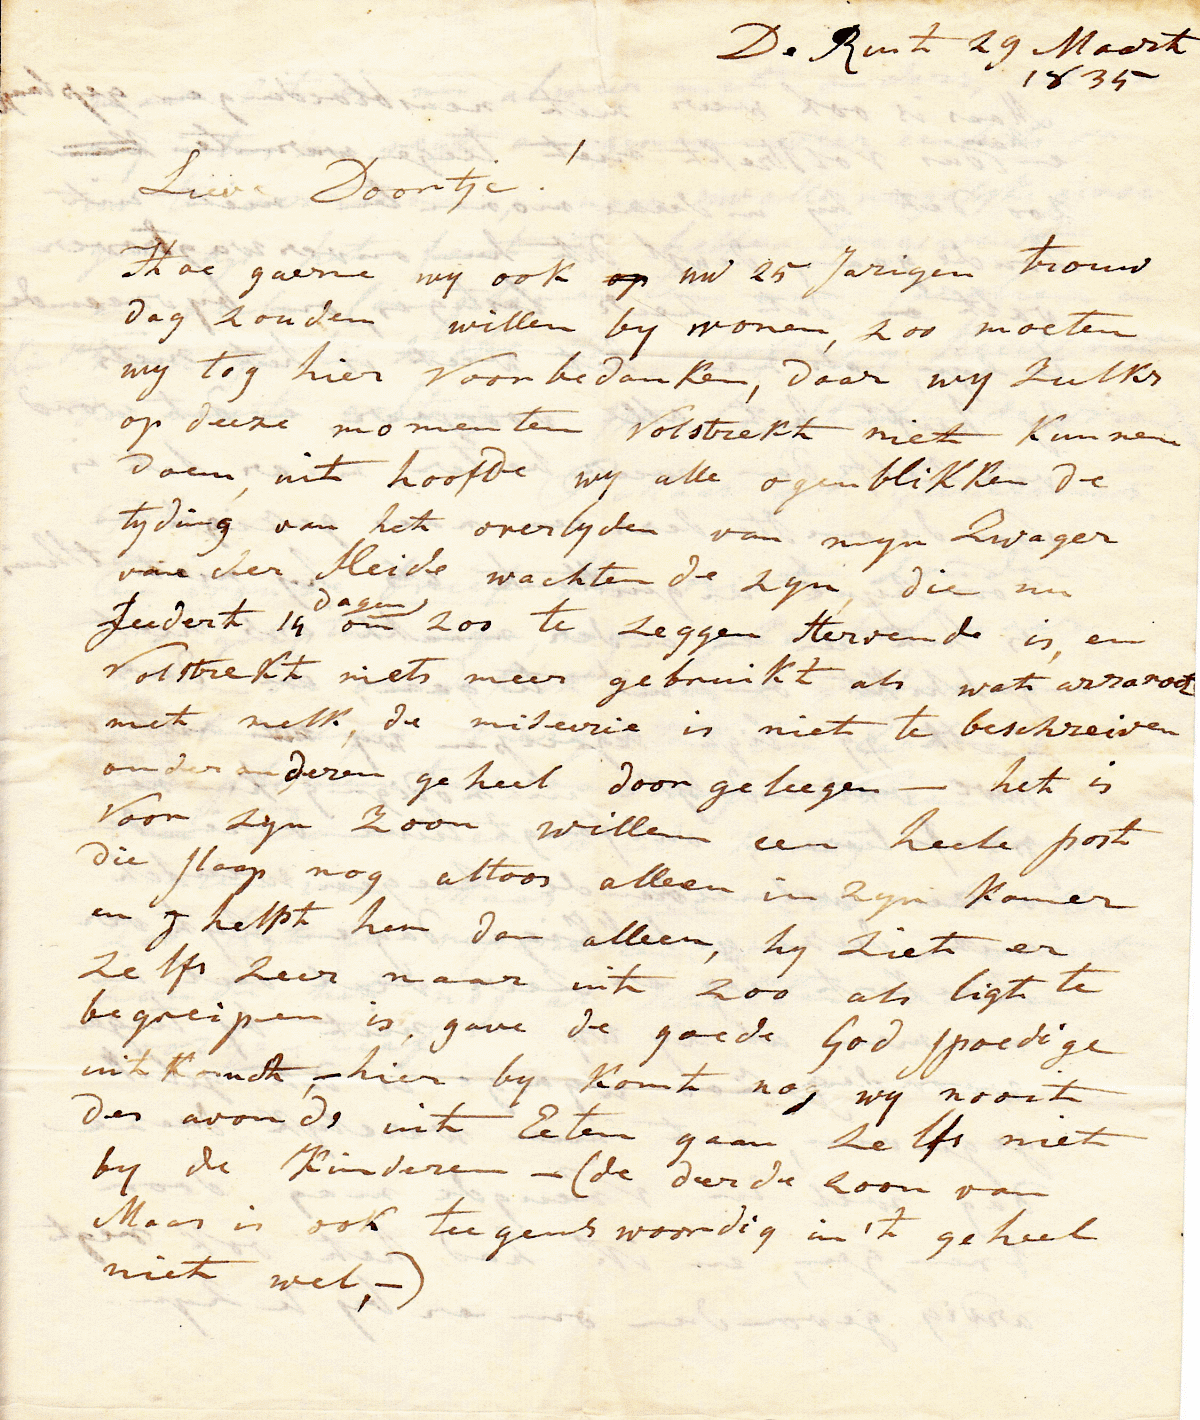 De Rust 29 Maart
1835
Lieve Doortje!
Hoe gaerne wy ook op uw 25 Jarigen trouw
dag zouden willen by wonen, zoo moeten
wy tog hier voor bedanken, daar wy zulks
op deeze momenten volstrekt niet kunnen
doen, uit hoofde wy alle ogenblikken de
tyding van het overlyden van myn Zwager
van der Heide wachten de zyn, die nu
Seedert 14 dagen om zoo te zeggen stervende is, en
volstrekt niets meer gebruikt als wat arrarood
met melk, de miserie is niet te beschreiven
onder anderen geheel door geleegen — het is
voor zyn Zoon willem een heele post
die slaap nog altoos alleen in zyn kamer
en helpt hem dan alleen, hy ziet er
zelfs zeer naar uit zoo als ligt te
begreipen is, gave de goede God spoedige
uitkomst, — hier by komt nog wy nooit
des avonds uit Eeten gaan zelfs niet
by de Kinderen — (de derde zoon van
Maas is ook teegenswoordig in 't geheel
niet wel, —)